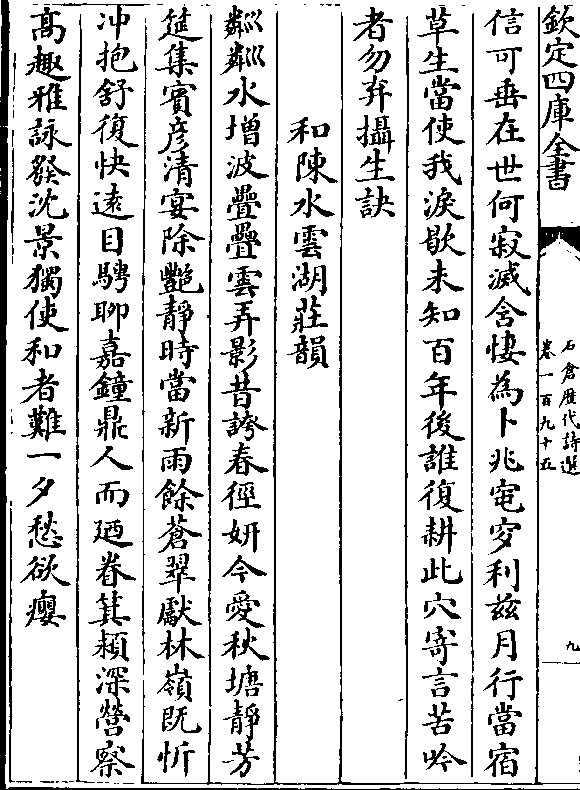 欽定四庫全書
石倉歴代詩選
卷一百九十五
九
信可垂在世何寂滅含悽為卜兆窀穸利兹月行當宿
草生當使我淚歇未知百年後誰復耕此穴寄言苦吟
者勿弃攝生訣
和陳水雲湖莊韻
粼粼水增波疊疊雲弄影昔誇春徑妍今愛秋塘靜芳
筵集賓彦清宴除艷靜時當新雨餘蒼翠獻林嶺既忻
冲抱舒復快遠目騁聊嘉鐘鼎人而廼眷箕潁深營察
髙趣雅詠發沈景獨使和者難一夕愁欲癭